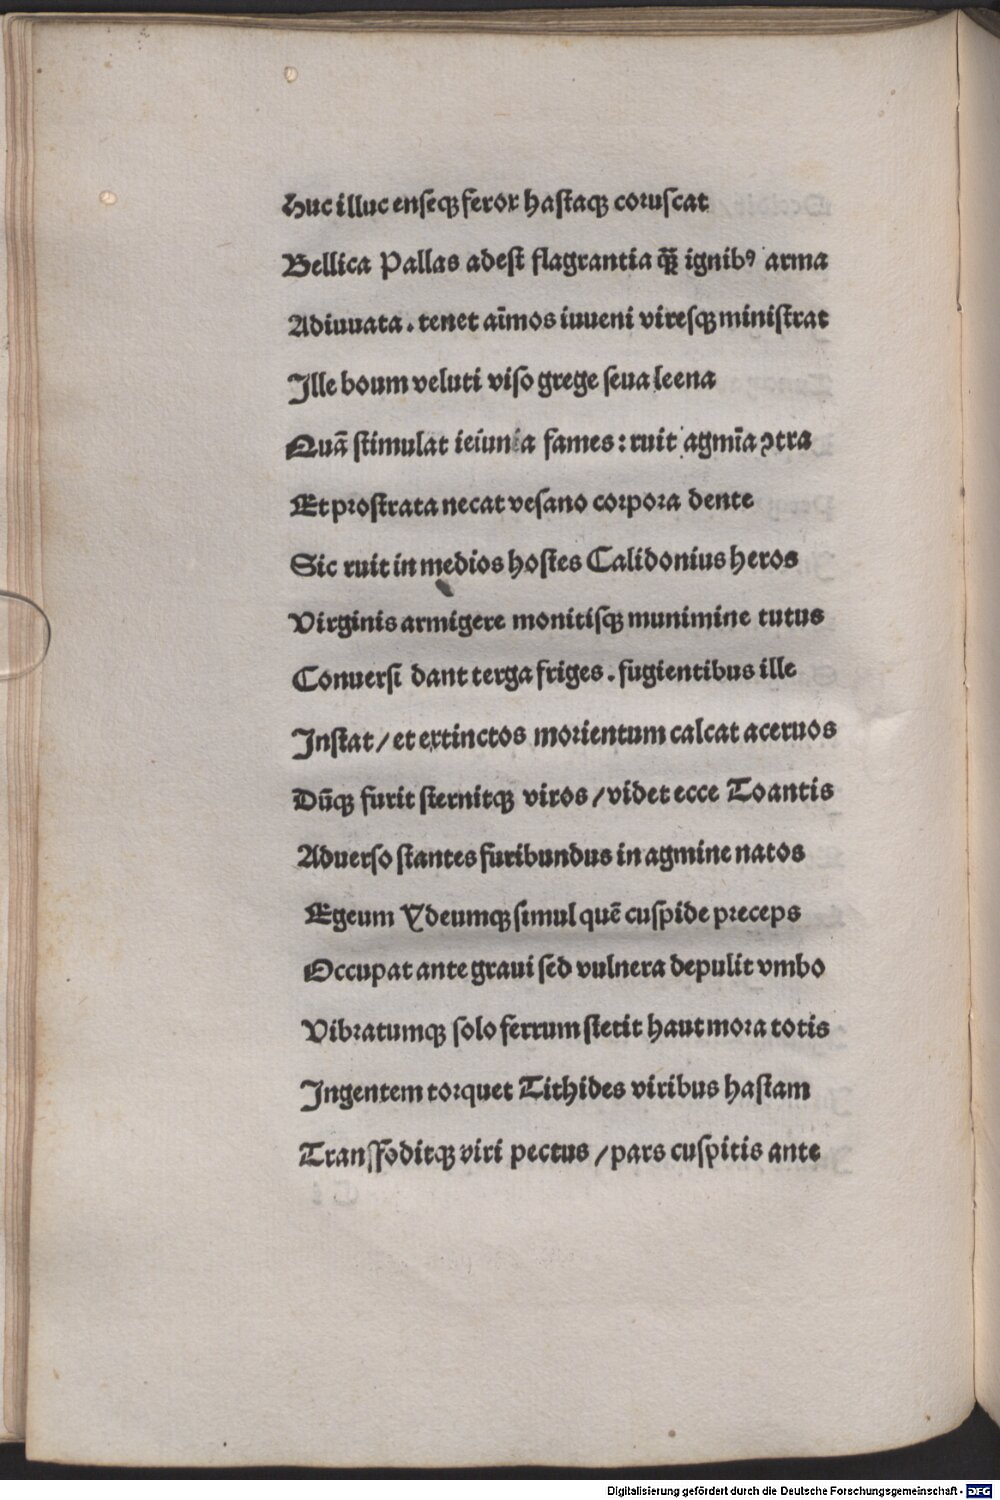 Huc illuc enseqꝫ feror hastaqꝫ coruscat
Bellica Pallas adest flagrantia qꝫ̃ ignibꝰ arma
Adiuuata . tenet aīmos iuueni viresqꝫ ministrat
Ille boum veluti viso grege seua leena
Quā stimulat ieiunia fames : ruit agmīa ꝯtra
Et prostrata necat vesano corpora dente
Sic ruit in medios hostes Calidonius heros
Virginis armigere monitisqꝫ munimine tutus
Conuersi dant terga friges . fugientibus ille
Instat / et extinctos morientum calcat aceruos
Dūqꝫ furit sternitqꝫ viros / videt ecce Toantis
Aduerso stantes furibundus in agmine natos
Egeum Ydeumqꝫ simul quē cuspide preceps
Occupat ante graui sed vulnera depulit vmbo
Vibratumqꝫ solo ferrum stetit haut mora totis
Ingentem torquet Tithides viribus hastam
Transfoditqꝫ viri pectus / pars cuspitis ante
Digitalisierung gefördert durch die Deutsche Forschungsgemeinschaft - DFG